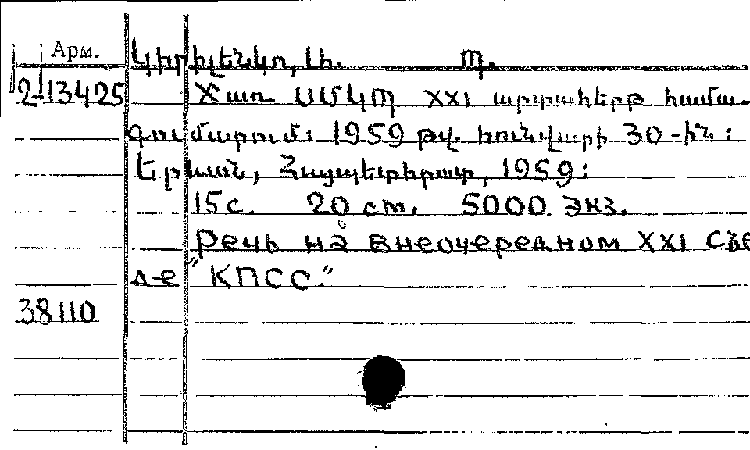 Арм.
Կիրիլենկո, Ա. Պ.
2-13425 Ճառ ՍՄԿՊ XXI արտահերթ համա-
գումարում: 1959 թվ. հունվարի 30-ին:
Երևան, Հայպետհրատ, 1959:
15 с. 20 cm. 5000 экз.
Речь на внеочередном XXI съе
зде "КПСС."
38110